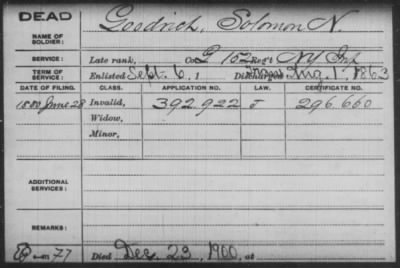 DEAD
NAME OF SOLDIER: Goodrich, Solomon N.
SERVICE: Late rank, Co. G 152 Reg't NY Inf
TERM OF SERVICE: Enlisted Sept. 6, 1 Discharged Aug. 1, 1863
DATE OF FILING. CLASS. APPLICATION NO. LAW. CERTIFICATE NO.
1880 June 28 Invalid, 392.922 J 296.660
Widow,
Minor,
ADDITIONAL SERVICES:
REMARKS:
77 Died Dec. 23, 1900, at